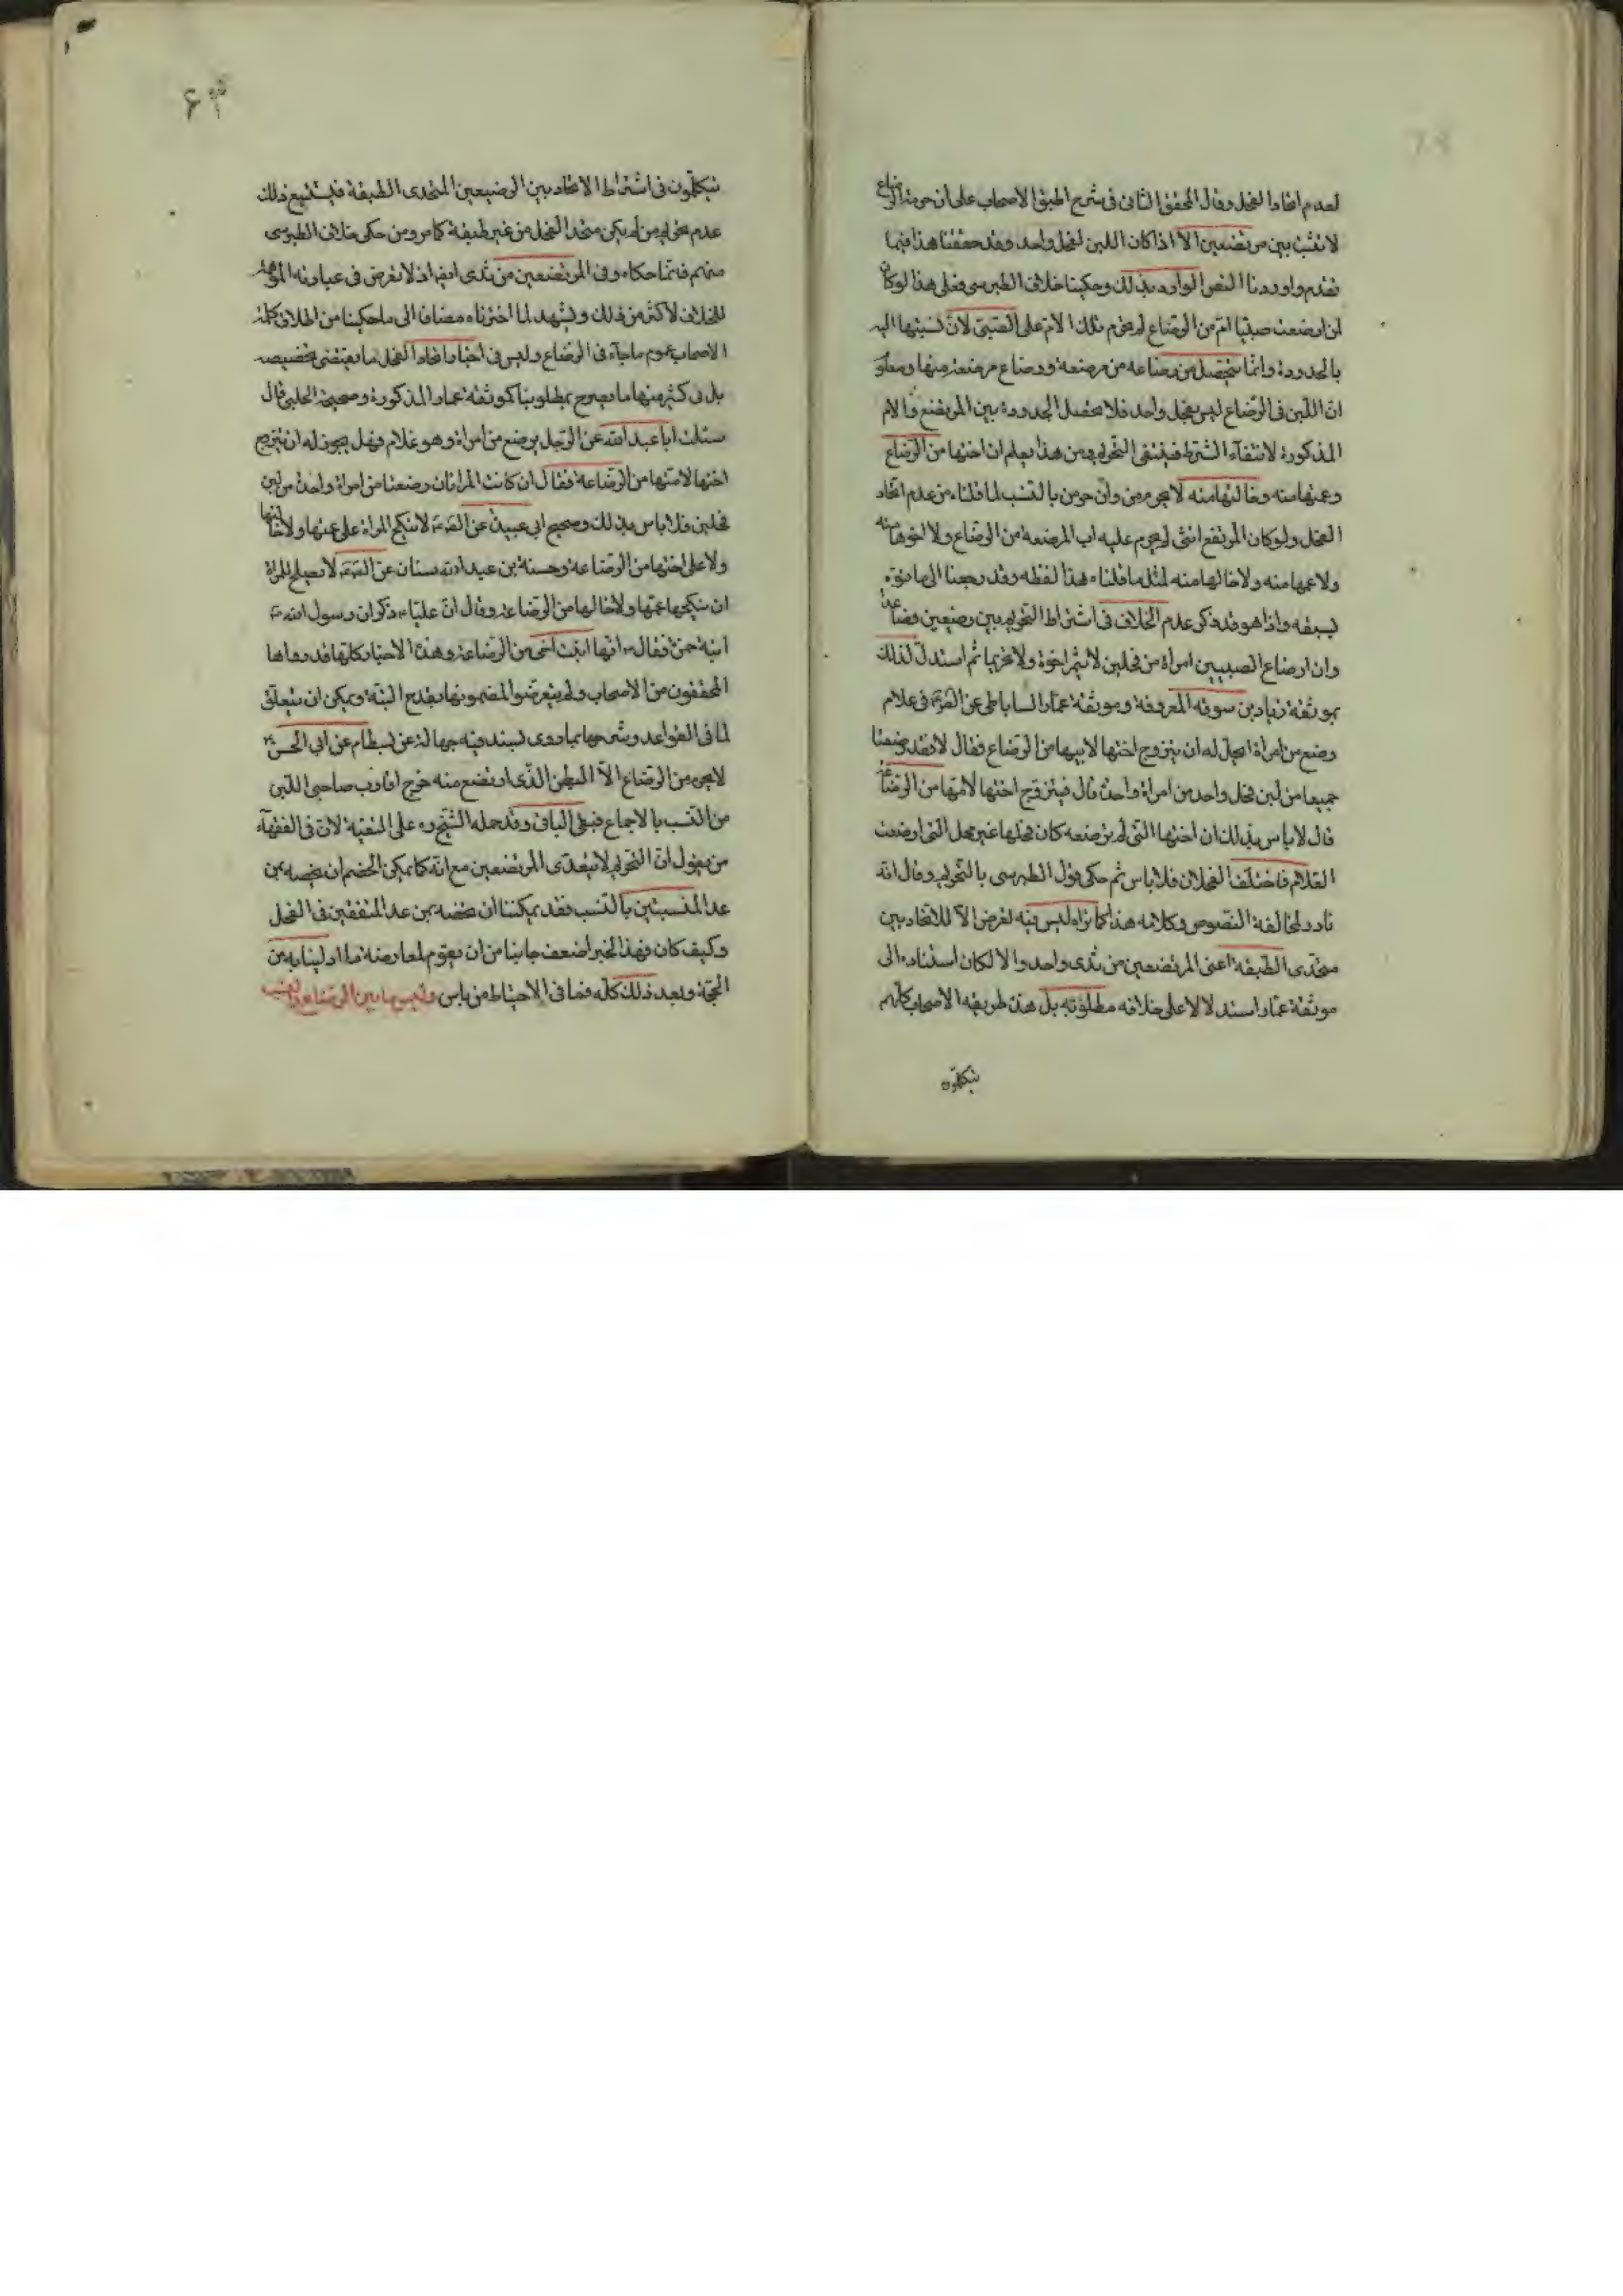 لعدم اتحاد الفحل وقال المحقق الثانى فى شرح اطبق الاصحاب على ان حرمة الرضاع
لا تثبت بين مرتضعين الا اذا كان اللبن لفحل واحد وقد حققنا هذا فيما
تقدم واوردنا النص الوارد بذلك وحكينا خلاف الطبرسى فعلى هذا لو كان
لمن ارضعت صبيا ام من الرضاع لم تحرم تلك الام على الصبى لان نسبتها اليه
بالجدودة وانما يتحصل من رضاعه من مرضعة ورضاع مرضعته منها ومعلوم
ان اللبن فى الرضاع ليس لفحل واحد فلا تحصل الجدودة بين المرتضع والام
المذكورة لانتفاء الشرط فينتفى التحريم ومن هذا يعلم ان اختها من الرضاع
وعمتها منه وخالتها منه لا يحرمن وان حرمن بالنسب لما قلناه من عدم اتحاد
الفحل ولو كان المرتضع انثى لم يحرم عليه اب المرضعه من الرضاع ولا اخوها منه
ولا عمها منه ولا خالها منه لمثل ما قلناه هذا لفظه وقد رجعنا الى ما
يسبقه واذا هو قد ذكر عدم الخلاف فى اشتراط التحريم بين رضيعين فصاعدا
وان ارضاع الصبيين امراة من فحلين لا يثمر اخوة ولا تحريما ثم استدل لذلك
بموثقة زياد بن سوقه المعروفة وموثقة عمار الساباطى عن الصٓ فى غلام
رضع من امراة ايحل له ان يتزوج اختها لابيها من الرضاع فقال لا فقد رضعتا
جميعا من لبن فحل واحد من امراة واحدة قال فيتزوج اختها لامها من الرضاعة
قال لا باس بذلك ان اختها التى لم ترضعه كان فحلها غير فحل التى ارضعت
الغلام فاختلف الفحلان فلا باس ثم حكى قول الطبرسى بالتحريم وقال انه
نادر لمخالفة النصوص وكلامه هذا كما تراه ليس فيه تعرض الا للاتحاد بين
متحدى الطبقة اعنى المرتضعين من ثدى واحد والا لكان استناده الى
موثقة عمار استدلالا على خلاف مطلوبه بل هذه طريقه الاصحاب كلهم
يتكلمون
يتكلمون فى اشتراط الاتحاد بين الرضيعين المتحدى الطبقة فيستتبع ذلك
عدم تحريم من لم يكن متحد الفحل من غير طبقة كما مر ومن حكى خلاف الطبرسى
منهم فانما حكاه وفى المرتضعين من ثدى ايضا اذ لا تعرض فى عبارته
للخلاف لاكثر من ذلك ويشهد لما اخترناه مضافا الى ما حكينا من اطلاق كلمة
الاصحاب عموم ما جاء فى الرضاع وليس فى اخبار اتحاد الفحل ما يقتضى تخصيصه
بل فى كثير منها ما يصرح بمطلوبنا كموثقة عمار المذكورة وصحيحة الحلبى قال
سئلت ابا عبد الله عن الرجل يرضع من امراة وهو غلام فهل يجوز له ان يتزوج
اختها لامها من الرضاعة فقال ان كانت المراتان رضعتا من امراة واحدة من لبن
فحلين فلا باس بذلك وصحيح ابى عبيدة عن الصٓ لا تنكح المراة على عمتها ولا خالتها
ولا على اختها من الرضاعة وحسنة بن عبد الله سنان عن الصٓ لا يصلح للمراة
ان ينكحها عمها ولا خالها من الرضاعة وقال ان عليا ذكر ان رسول الله
ابنة حمزة فقال انها ابنت اخى من الرضاعة وهذه الاخبار كلها قد رواها
المحققون من الاصحاب ولم يتعرضوا لمضمونها بقدح البتة ويمكن ان يتعلق
لما فى القواعد وشرحها بما روى بسند فيه جهالة عن بسطام عن ابى الحسن
لا يحرم من الرضاع الا البطن الذى ارتضع منه خرج اقارب صاحبى اللبن
من النسب بالاجماع فبقى الباقى وقد حمله الشيخ ره على التقية لان فى الفقهاء
من يقول ان التحريم لا يتعدى المرتضعين مع انه كما يمكن الخصم ان يخصه بمن
عدا المنتسبين بالنسب فقد يمكننا ان نخصه بمن عدا المتفقين فى الفحل
وكيف كان فهذا الخبر اضعف جانبا من ان يقوم لمعارضة ما ادلينا به من
الحجة وبعد ذلك كله فما فى الاحتياط من باس وليس ما بين الرضاع والنسب